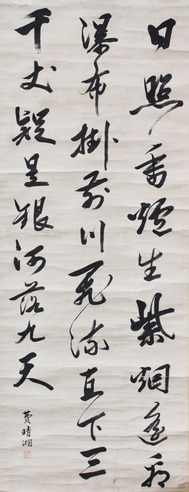 日照香爐生紫烟遙看
瀑布掛前川飛流直下三
千丈疑是银河落九天
黄晴湖